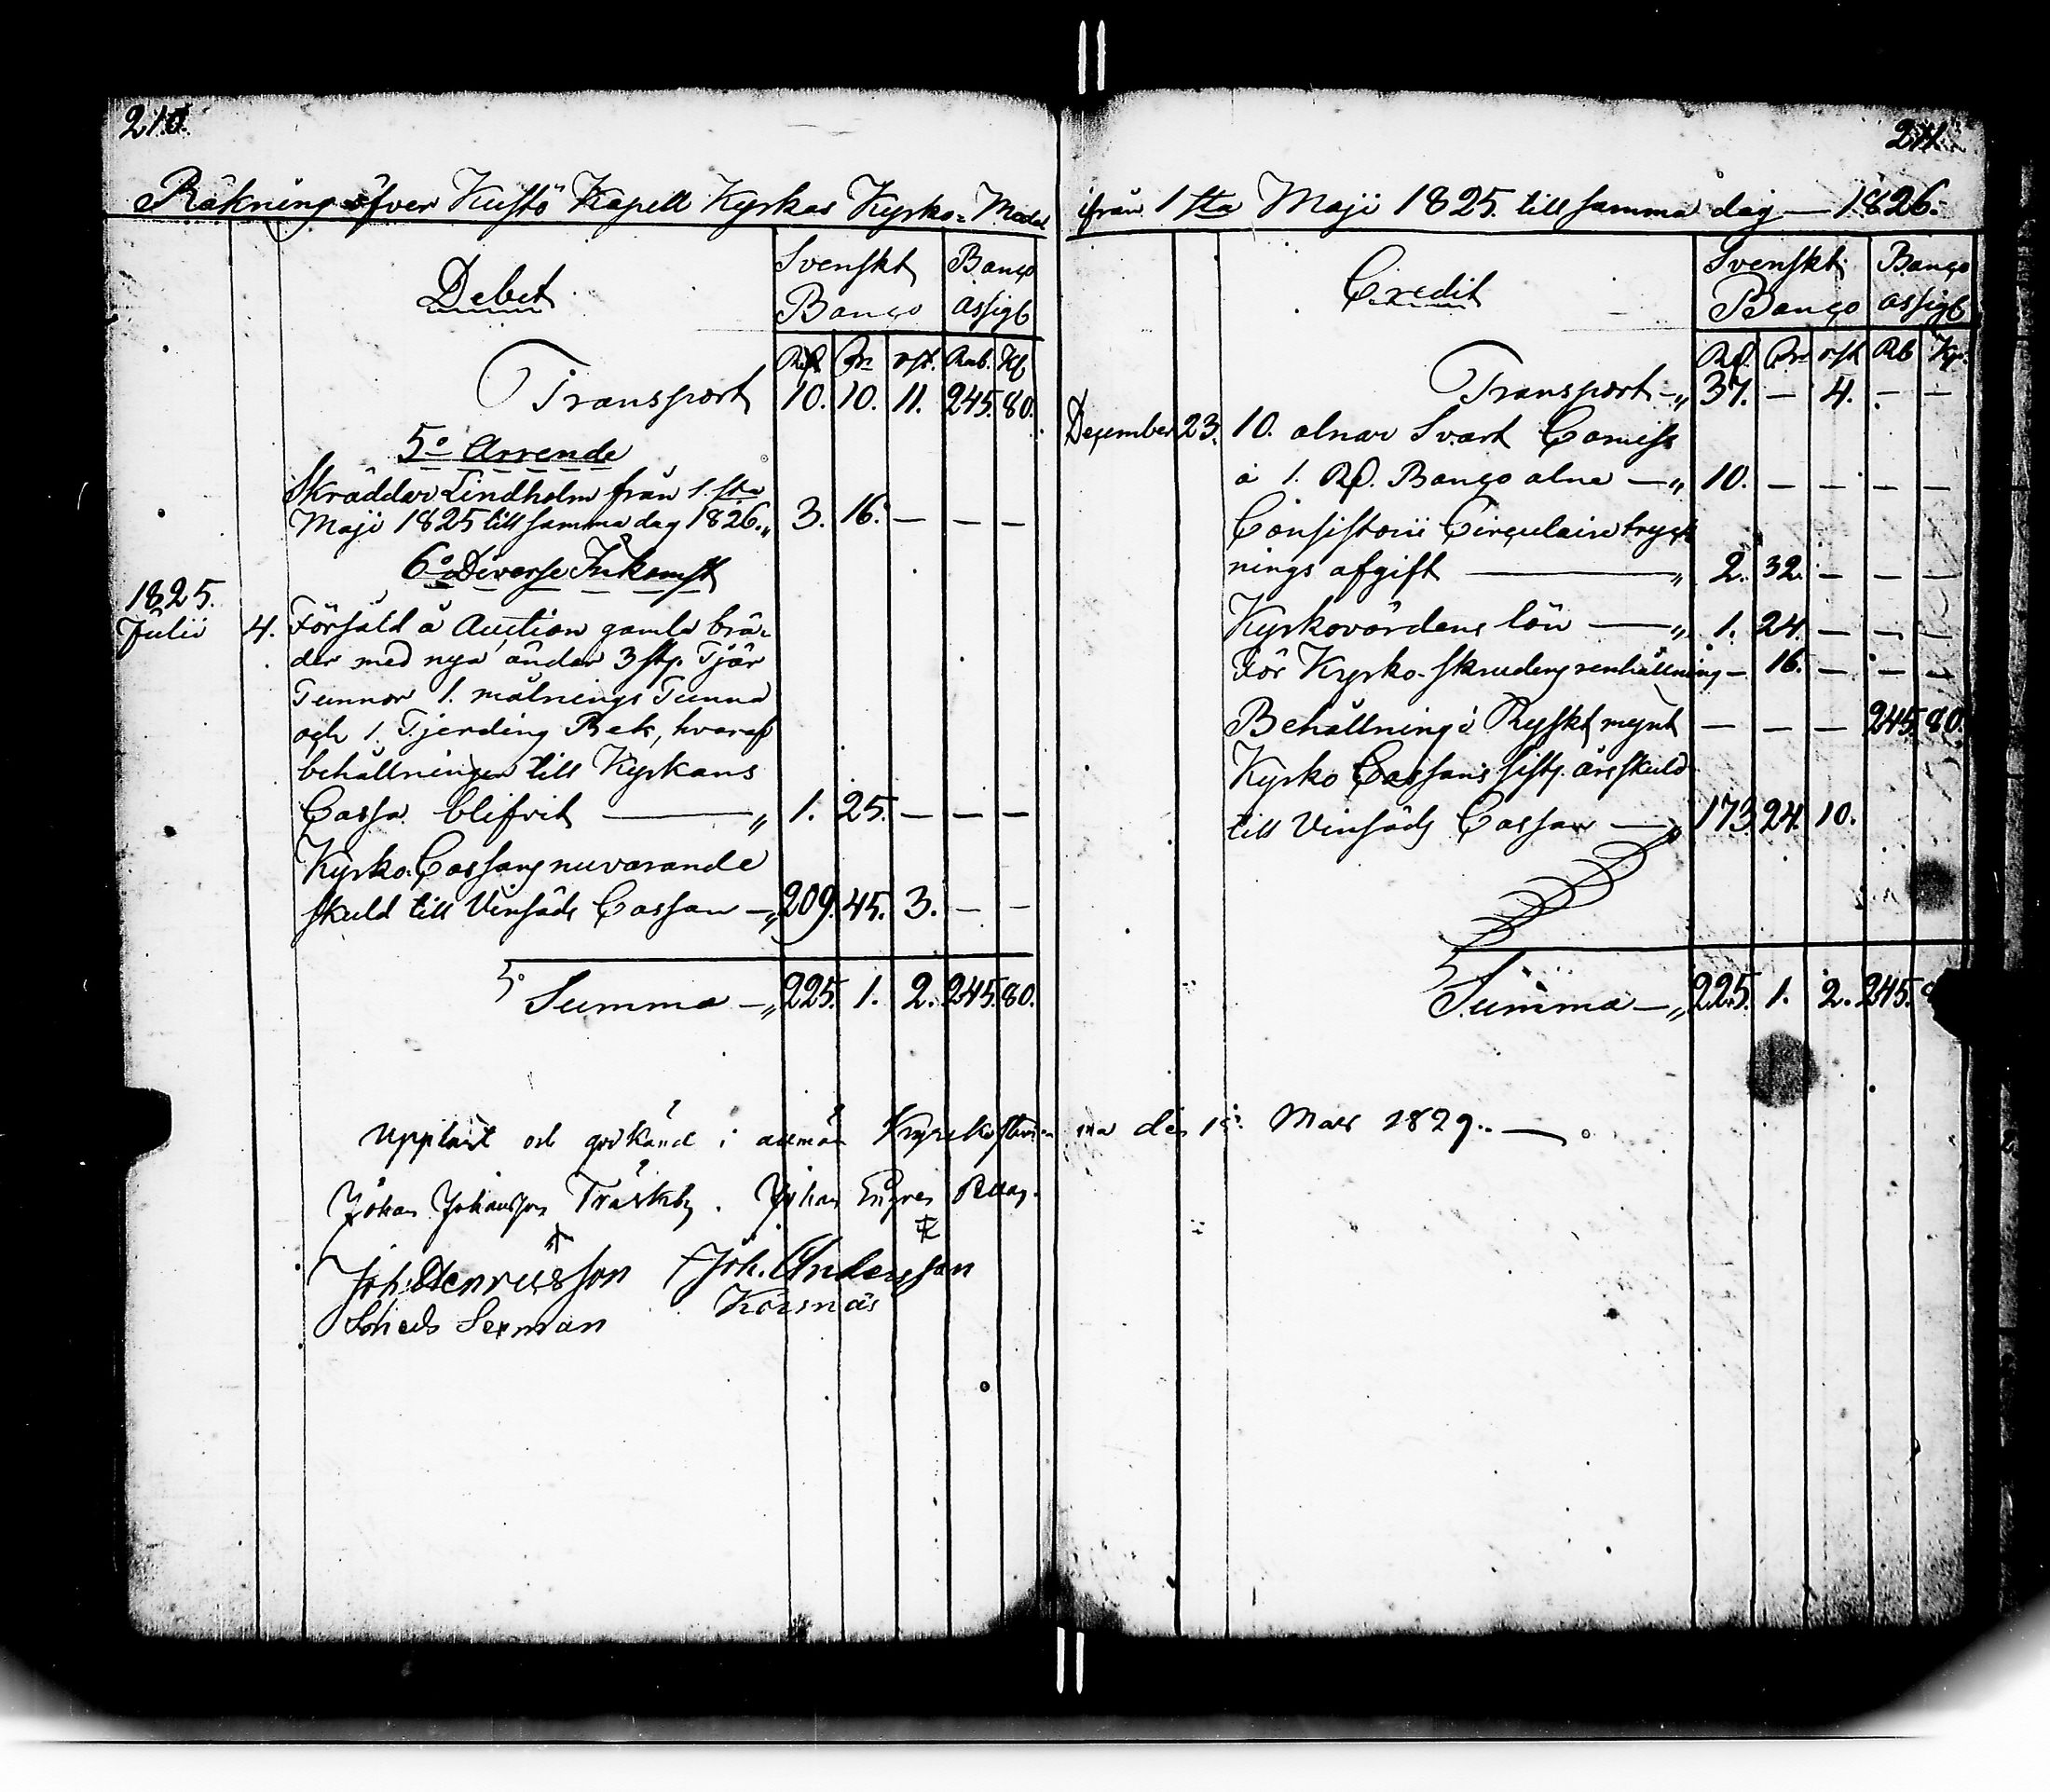 210.
Räkning öfver Kustö Kapell Kyrkas Kyrko-Medel
Debet
Svenskt Banco
Banco assigt
Rd. rst. Rub. K
Transport 10. 10. 11. 245. 80.
5o Arrende
Skräddar Lindholm från 1.sta
Maji 1825 till samma dag 1826. „ 3. 16. — — —
6o Diverse Inkomst
1825.
Julii 4. Försåld å Auction gamla brä-
der med nya ändar 3 st. Tjär
Tunnor 1. målnings Tunna
och 1. Tjerding Bek, hvaraf
behållningen till Kyrkans
Cassa blifvit — „ 1. 25. — — —
Kyrko-Cassans nuvarande
skuld till Vinsäds Cassan — „ 209. 45. 3. — —
Summa — „ 225. 1. 2. 245. 80.
Uppläst och godkänd i allmän
Johan Johansson Träskby. Johan
Joh: Henricsson Joh. Andersson
Korsnäs
211.
ifrån 1sta Maji 1825. till samma dag — 1826.
Credit
Svenskt Banco
Banco assigt
Rd. rst Rb Kp.
Transport — „ 37. — 4. — —
December 23. 10. alnar Svart Camiss
à 1. Rd. Banco alne — „ 10. — — — —
Consistorii Circulaire tryck
nings afgift — „ 2. 32. — — —
Kyrkovärdens lön — „ 1. 24. — — —
För Kyrko-skrudens renhållning — 16. — — —
Behållning i Ryskt mynt — — — 245. 80.
Kyrko Cassans sistl. års skuld
till Vinsäds Cassan — „ 173. 24. 10.
Summa — „ 225. 1. 2. 245.
Mars 1829. —